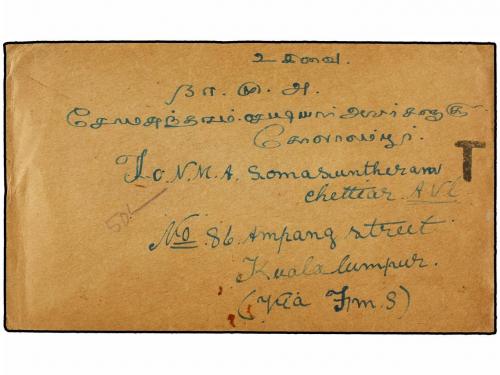 உ சிவை.
நா. மு. அ.
சோமசுந்தரம் செட்டியார் அவர்களுக்கு
கோலாலம்பூர்.
To. N. M. A. Somasuntheram
Chettiar. A.V.L
T
50/-
No. 86. Ampang street
Kuala lumpur.
(Via F.m.S)